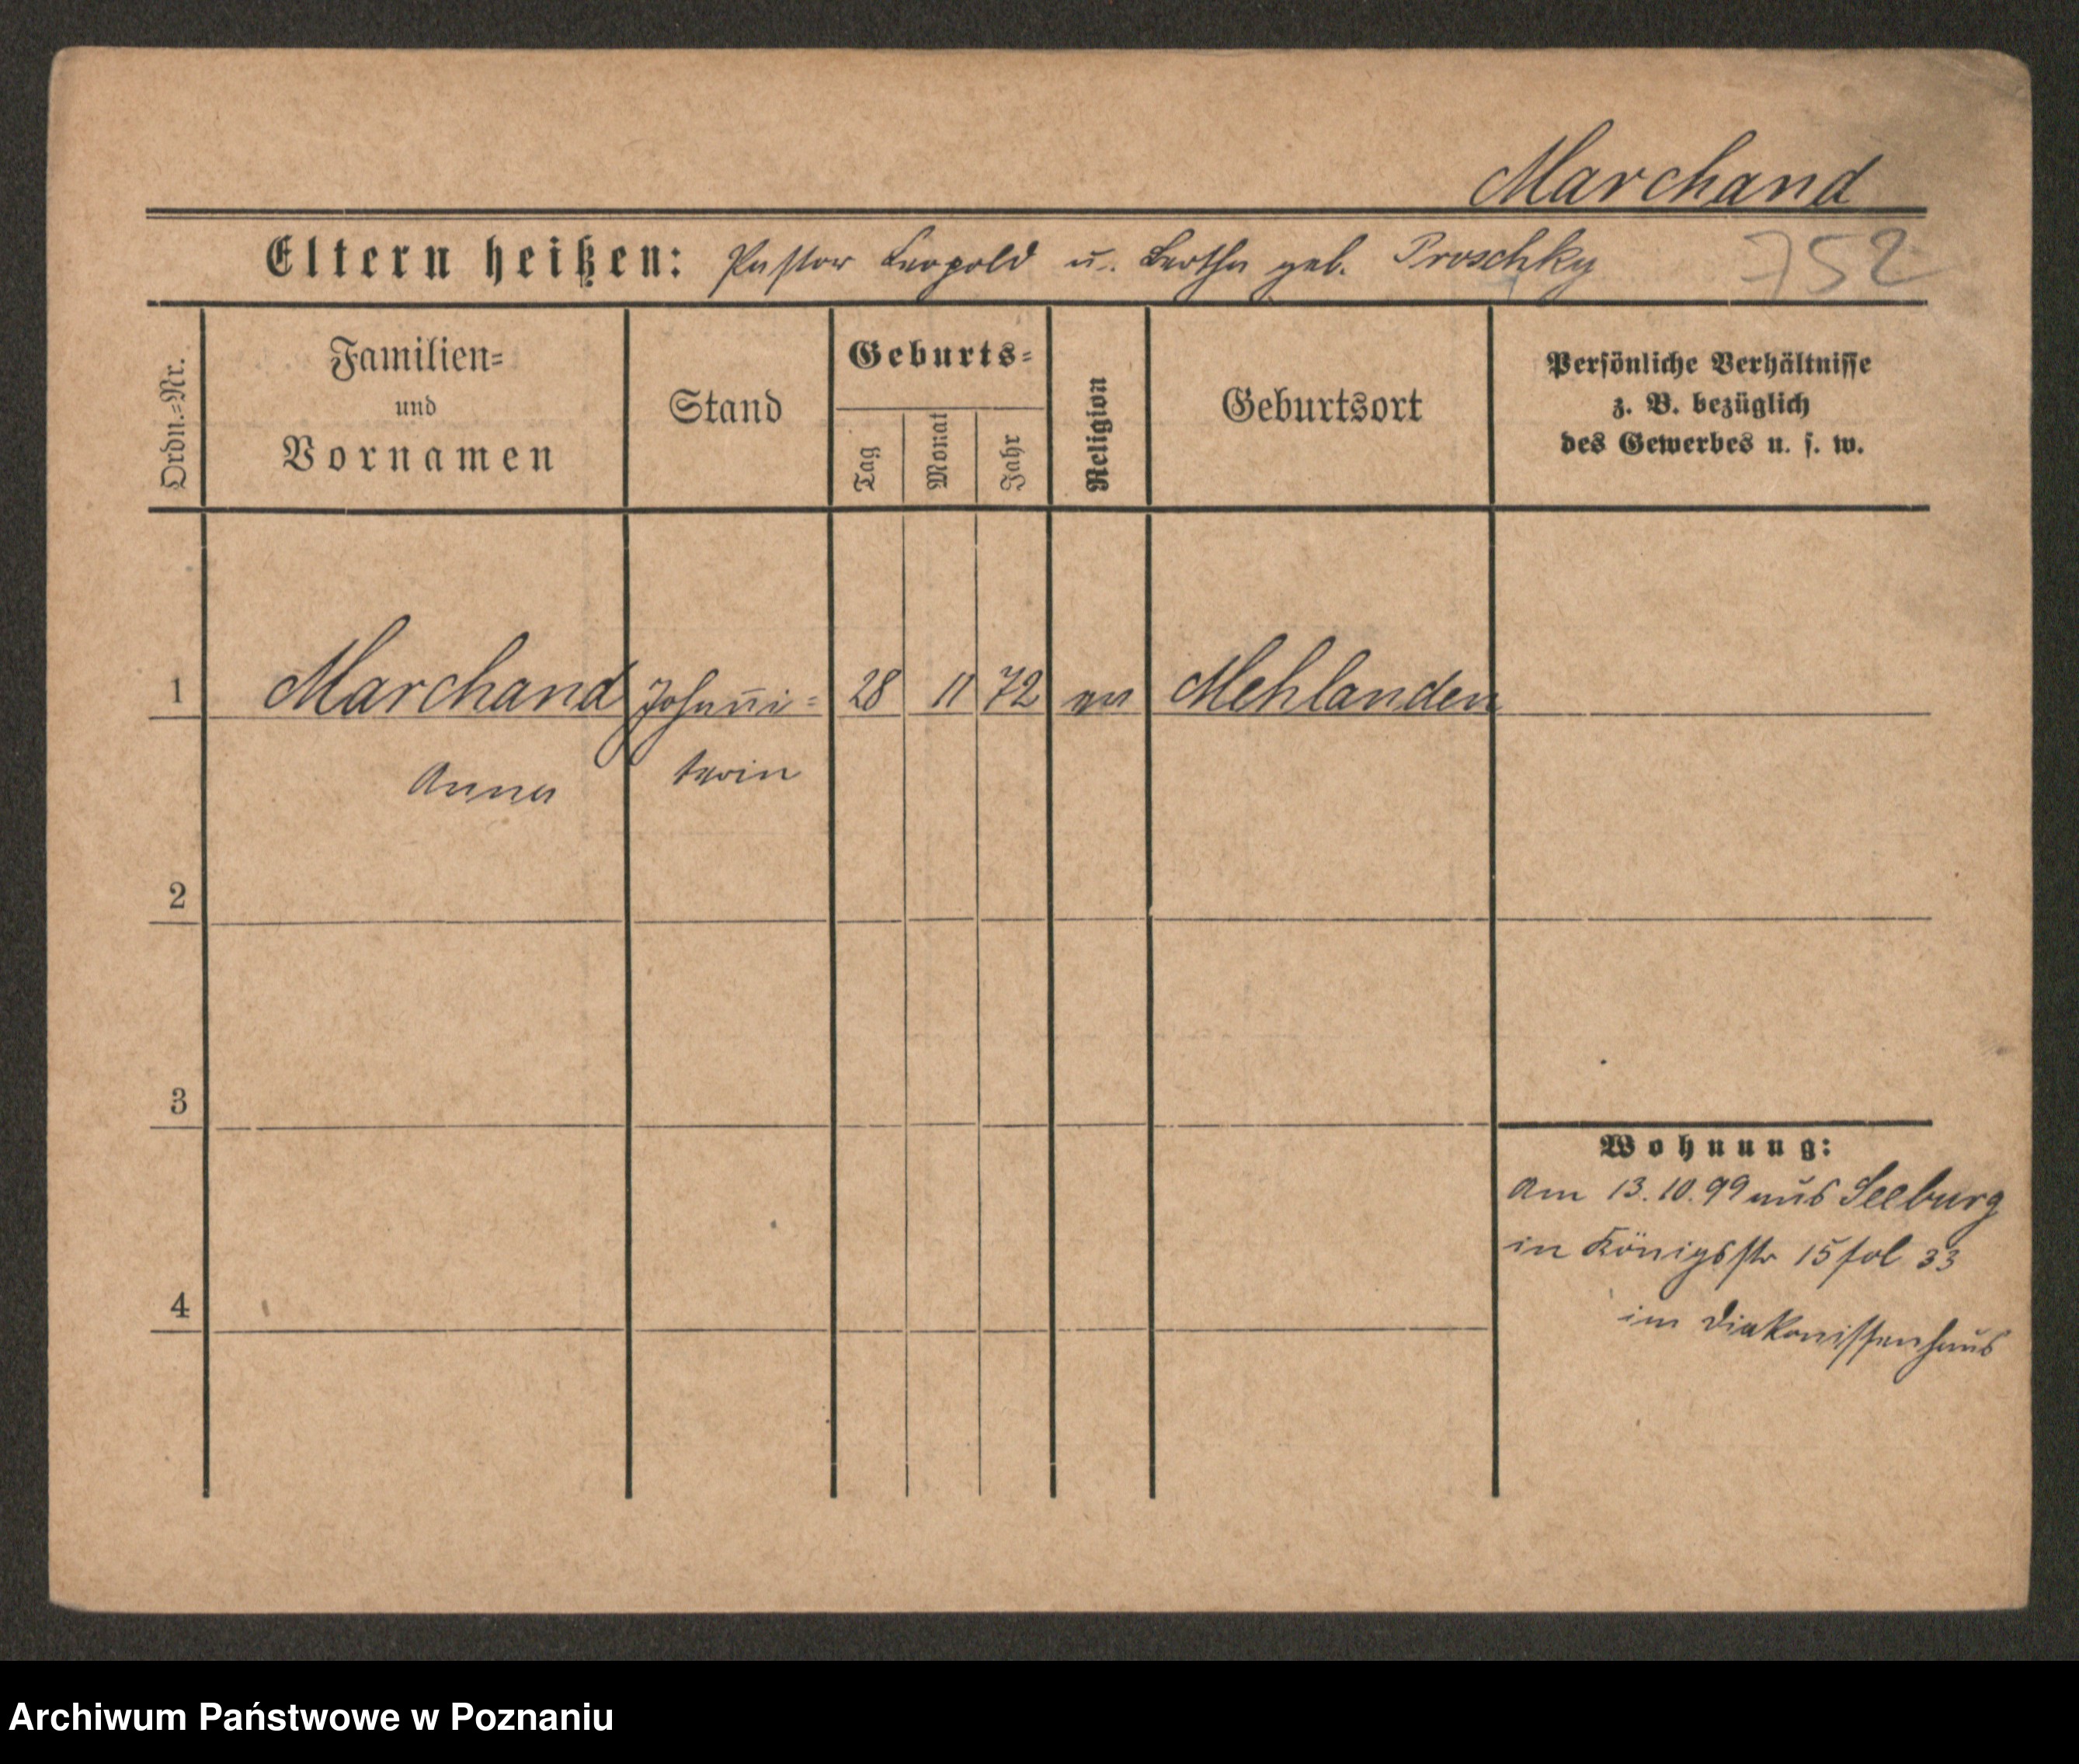 Marchand
Eltern heißen: Pastor Leopold u. Bertha geb. Proschky 752
Ordn.=Nr.
Familien=
und
Vornamen
Stand
Geburts=
Tag
Monat
Jahr
Religion
Geburtsort
Persönliche Verhältnisse
z. B. bezüglich
des Gewerbes u. s. w.
1 Marchand Johanni= 28 11 72 ev Mehlanden
Anna terin
2
3
Wohnung:
Am 13.10.99 aus Seeburg
in Königsstr 15 fol 33
4
im Diakonissenhaus
Archiwum Państwowe w Poznaniu